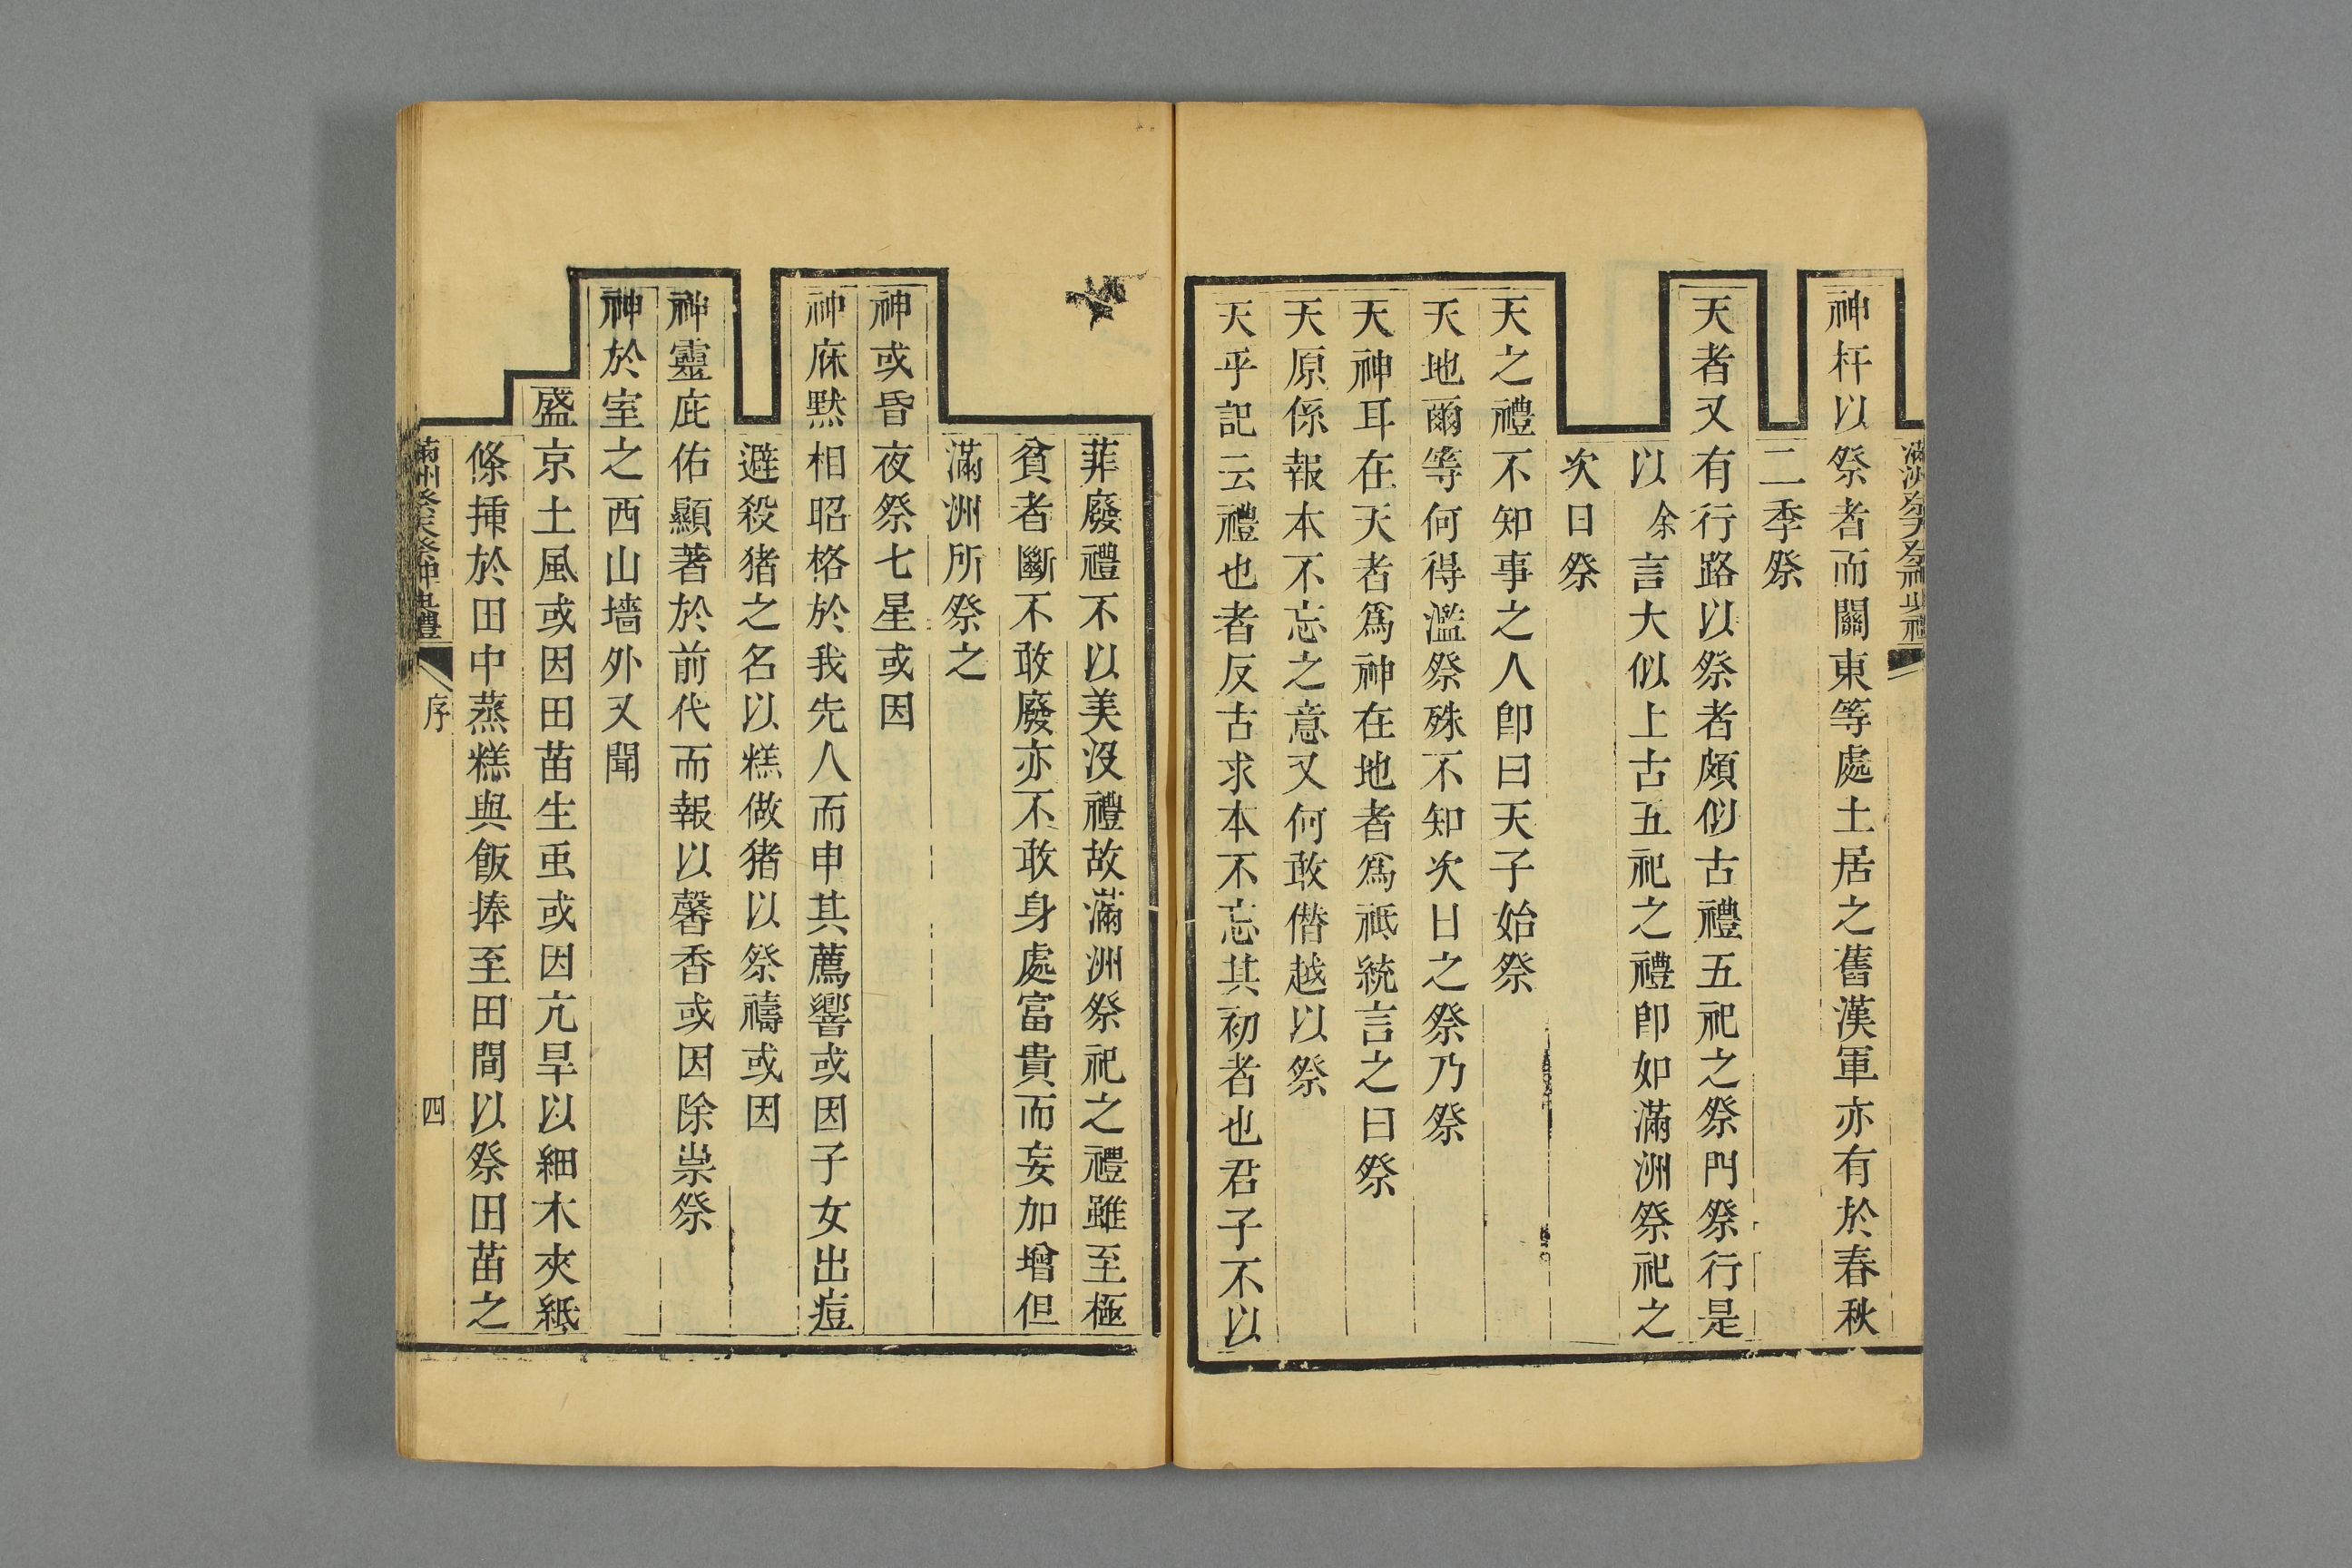 神杆以祭者而關東等處土居之舊漢軍亦有於春秋
二季祭
天者又有行路以祭者頗似古禮五祀之祭門祭行是
以余言大似上古五祀之禮卽如滿洲祭祀之
次日祭
天之禮不知事之人卽曰天子始祭
天地爾等何得濫祭殊不知次日之祭乃祭
天神耳在天者爲神在地者爲祗統言之曰祭
天原係報本不忘之意又何敢僭越以祭
天乎記云禮也者反古求本不忘其初者也君子不以
菲廢禮不以美沒禮故滿洲祭祀之禮雖至極
貧者斷不敢廢亦不敢身處富貴而妄加增但
滿洲所祭之
神或昏夜祭七星或因
神庥默相昭格於我先人而申其薦響或因子女出痘
避殺猪之名以糕做猪以祭禱或因
神靈庇佑顯著於前代而報以馨香或因除祟祭
神於室之西山墻外又聞
盛京土風或因田苗生䖝或因亢旱以細木夾紙
條挿於田中蒸糕與飯捧至田間以祭田苗之
滿洲祭天祭神典禮
序
四